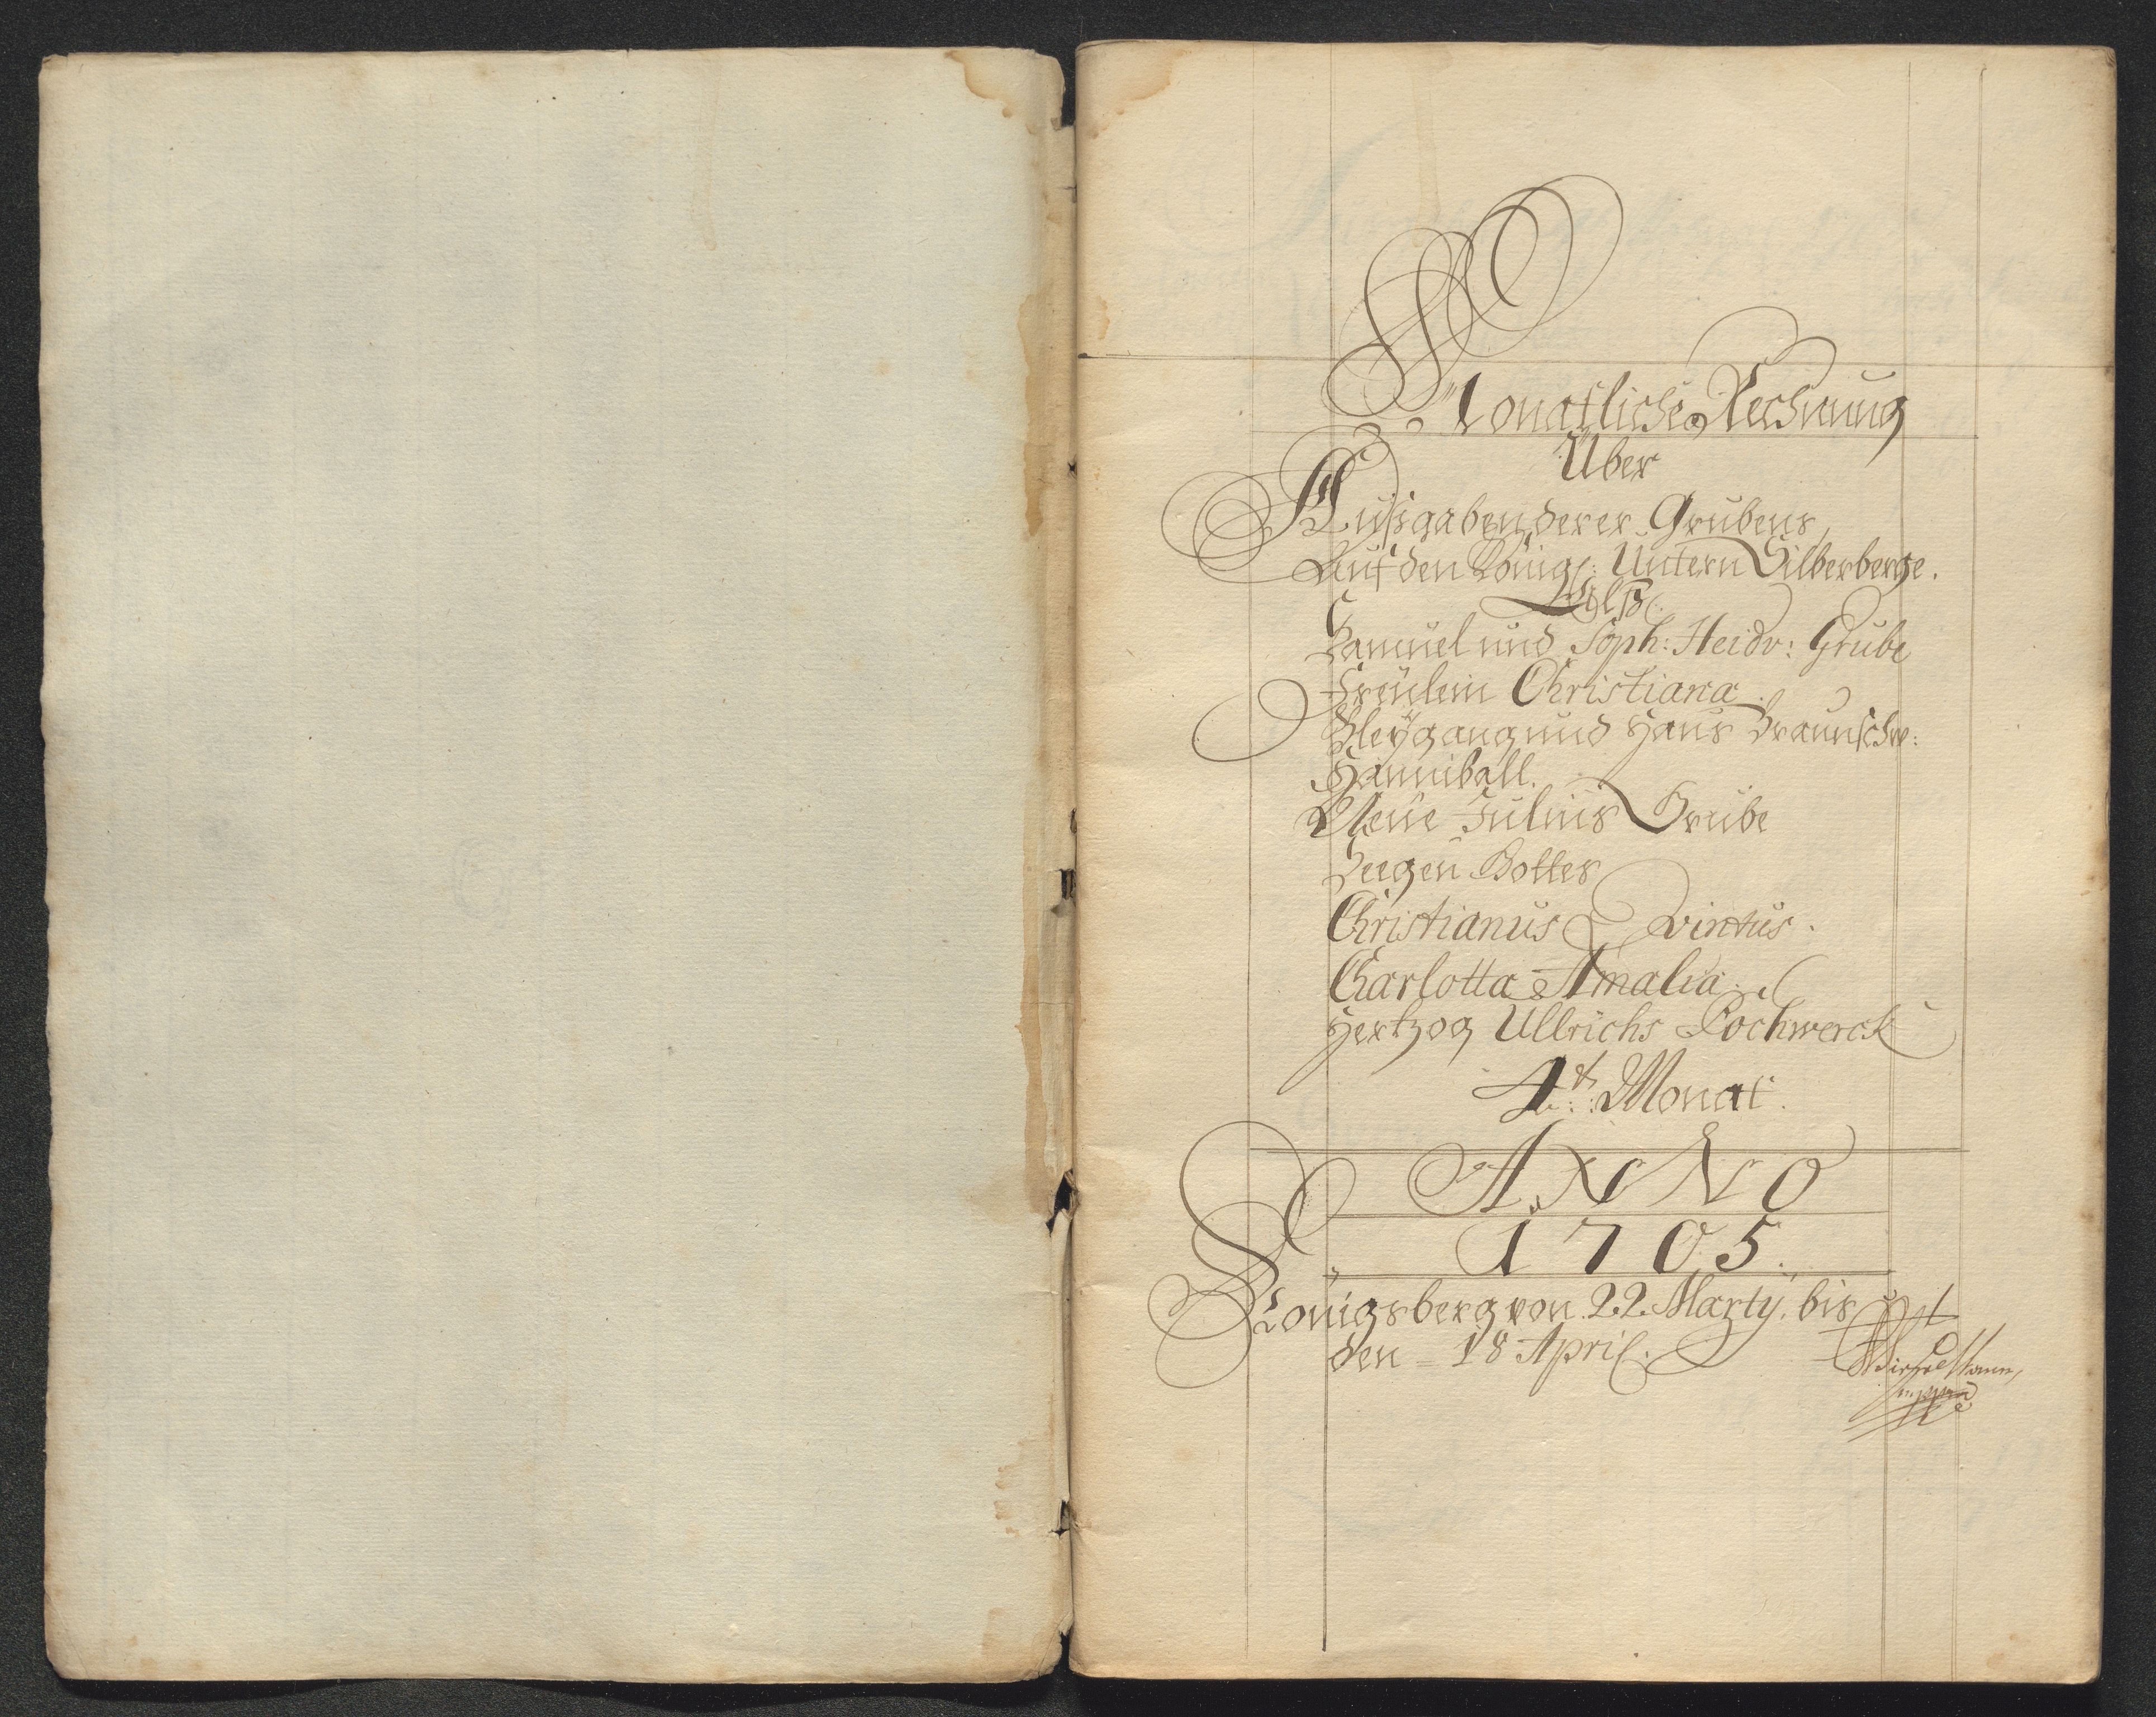 Monatliche Rechnung
Über
Ausgaben derer Grubens,
Auf den Königl: Untern Silberberge.
Alß
Samuel und Soph: Heidv: Grube
Freülein Christiana
Bleygang und Hans Braunschw:
Hanniball.
Neüe Julius Grube
Seegen Gottes
Christianus Qvintus.
Charlotta Amalia.
Hertzog Ullrichs Pochwerck
4t: Monat.
ANNO
1705.
Königsberg von 22. Marty. bis
den = 18 April: